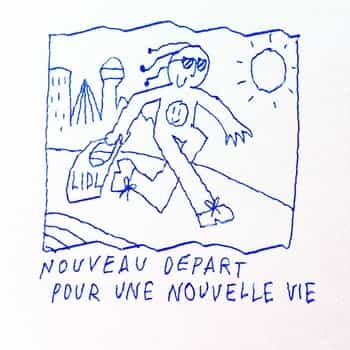 LIDL
NOUVEAU DÉPART
POUR UNE NOUVELLE VIE